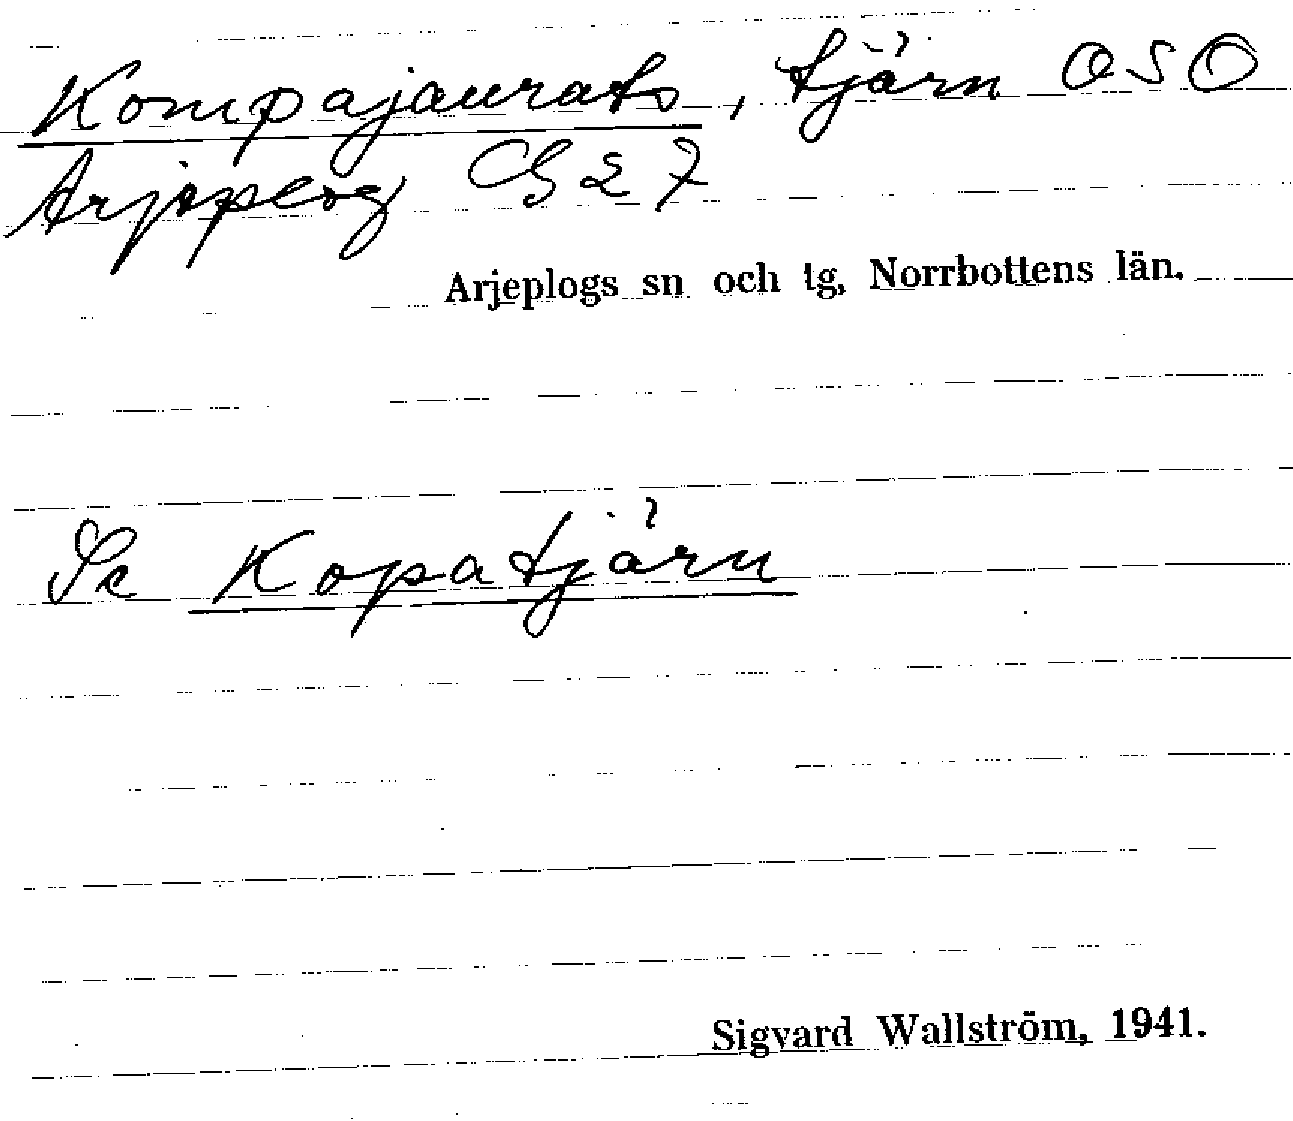 Kompajaurats, tjärn OSO
Arjeplog C27
Arjeplogs sn och tg, Norrbottens län.
Se Kopatjärn
Sigvard Wallström, 1941.